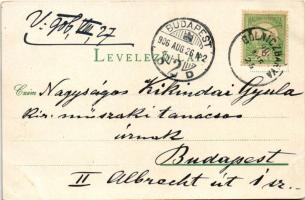 V: 906, VIII 27
LEVELEZŐ-LAP
BUDAPEST
906 AUG 26 N2
D
Czím
Nagyságos Kikindai Gyula
kir. műszaki tanácsos
úrnak
Budapest
II Albrecht út